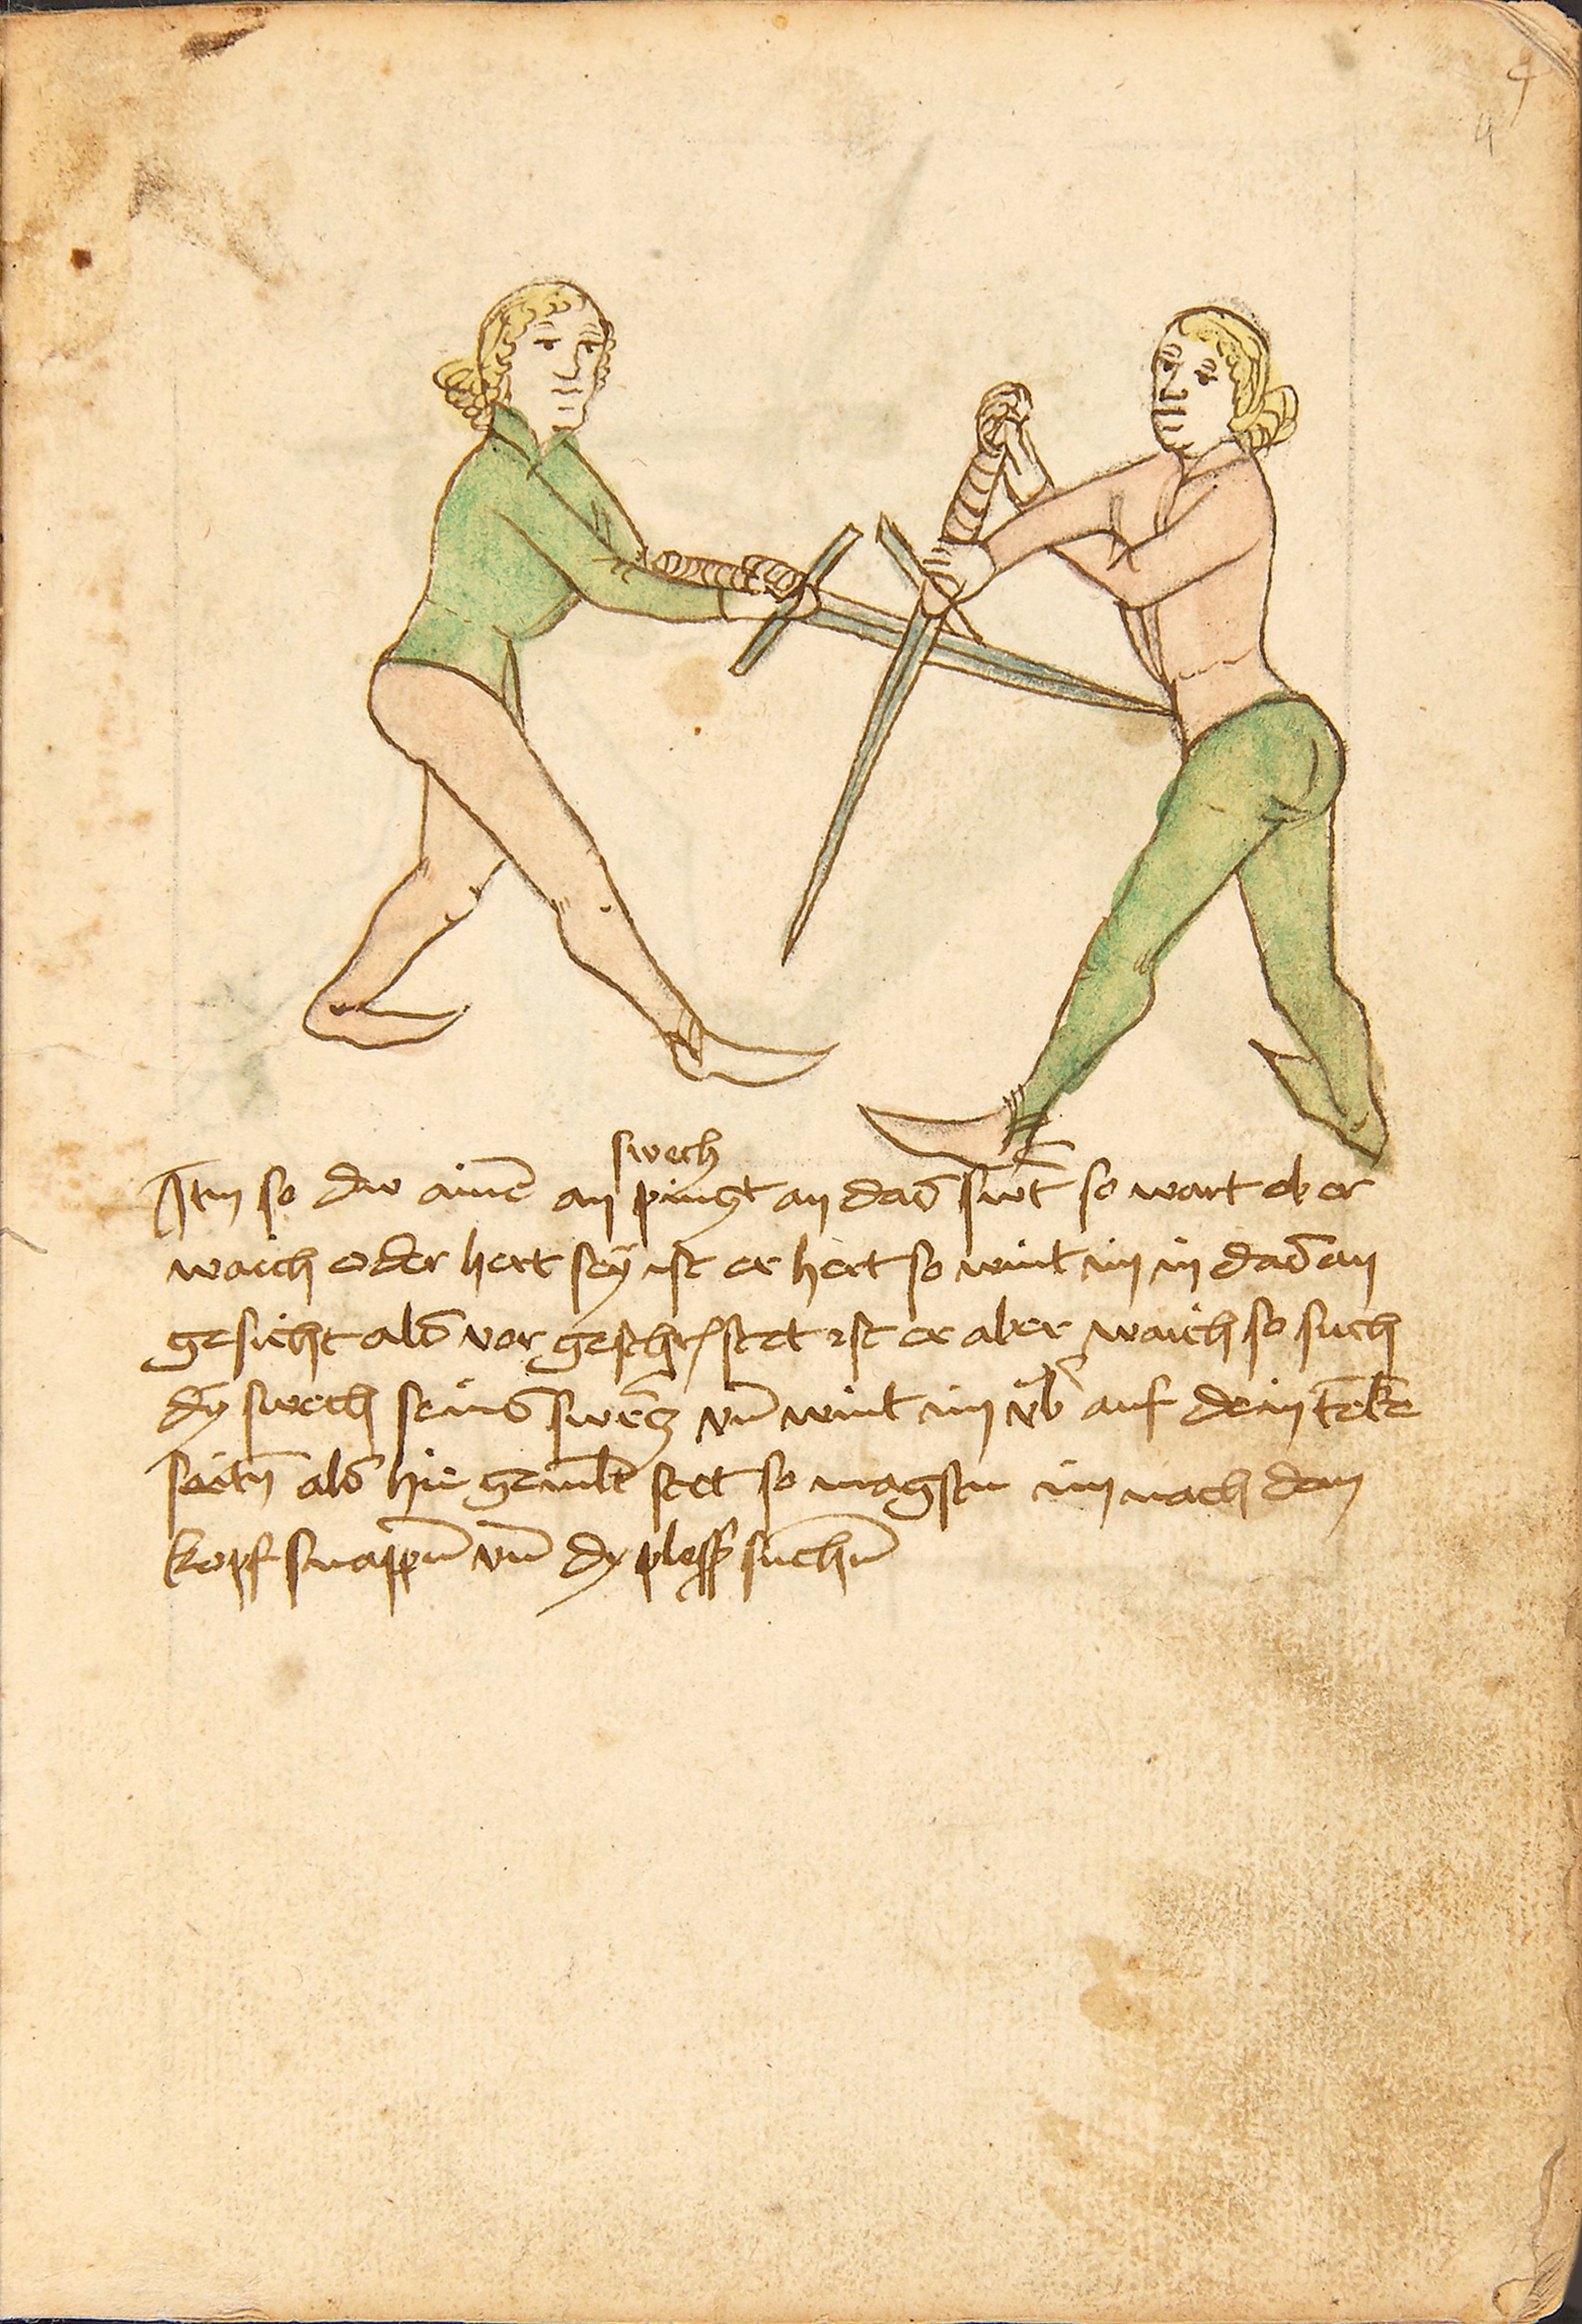 4
4
swech
Itm so dw ainē an pingt an das swt̄ so wart ob er
waich oder hert seÿ ist er hert so wint im in das an
gesicht als vor geschr stet ist er aber waich so such
dy swech seins swerc̄z vn̄ wint im vb̄ auf dein tēke
seitn̄ als hie gemlt̄ stet so magstu im nach dem
kopf snappn̄ vn̄ dy plöss suchn̄